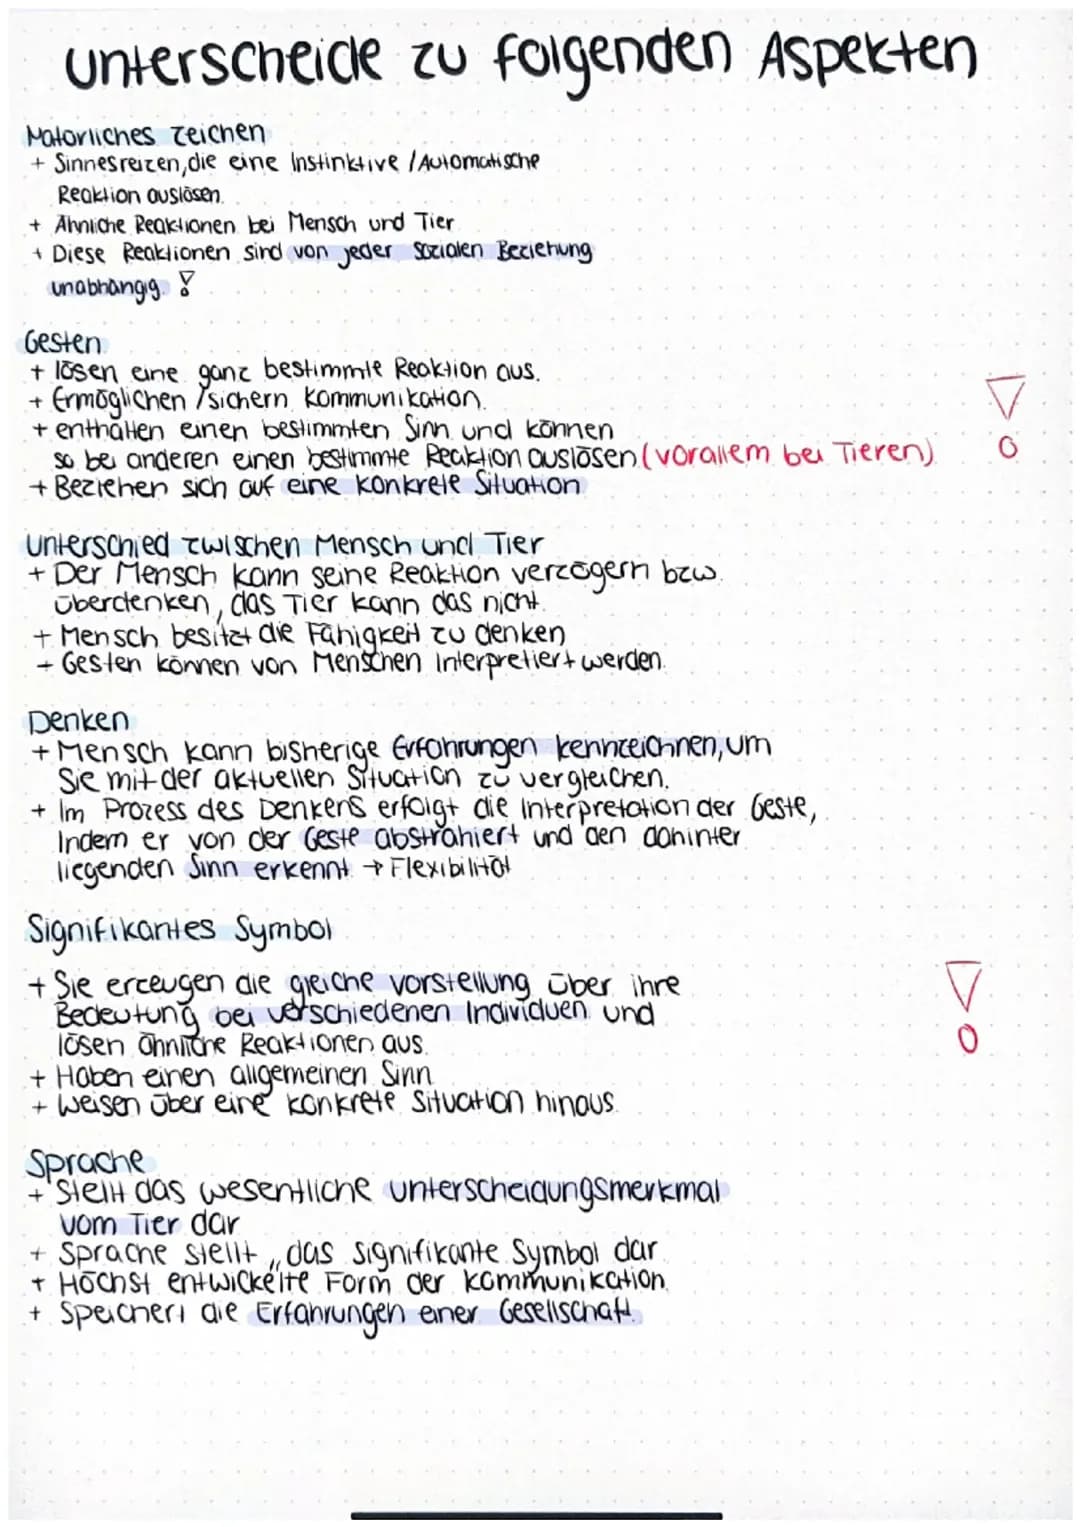 unterscheide zu folgenden Aspekten
Natürliches Zeichen
+ Sinnesreizen, die eine Instinktive / Automatische
Reaktion auslösen.
+ Ähnliche Reaktionen bei Mensch und Tier
+ Diese Reaktionen sind von jeder Sozialen Beziehung
unabhängig. !
Gesten
+ lösen eine ganz bestimmte Reaktion aus.
+ Ermöglichen / sichern Kommunikation.
+ enthalten einen bestimmten Sinn und können
so bei anderen einen bestimmte Reaktion auslösen (vorallem bei Tieren) !
+ Beziehen sich auf eine konkrete Situation
Unterschied zwischen Mensch und Tier
+ Der Mensch kann seine Reaktion verzögern bzw.
überdenken, das Tier kann das nicht.
+ Mensch besitzt die Fähigkeit zu denken
+ Gesten können von Menschen Interpretiert werden.
Denken
+ Mensch kann bisherige Erfahrungen kennzeichnen, um
Sie mit der aktuellen Situation zu vergleichen.
+ Im Prozess des Denkens erfolgt die Interpretation der Geste,
Indem er von der Geste abstrahiert und den dahinter
liegenden Sinn erkennt. → Flexibilität
Signifikantes Symbol
+ Sie erzeugen die gleiche Vorstellung über ihre
Bedeutung bei verschiedenen Individuen und
lösen ähnliche Reaktionen aus. !
+ Haben einen allgemeinen Sinn
+ Weisen über eine konkrete Situation hinaus.
Sprache
+ Stellt das wesentliche unterscheidungsmerkmal
vom Tier dar
+ Sprache stellt „das signifikante Symbol dar
+ Höchst entwickelte Form der Kommunikation
+ Speichert die Erfahrungen einer Gesellschaft.